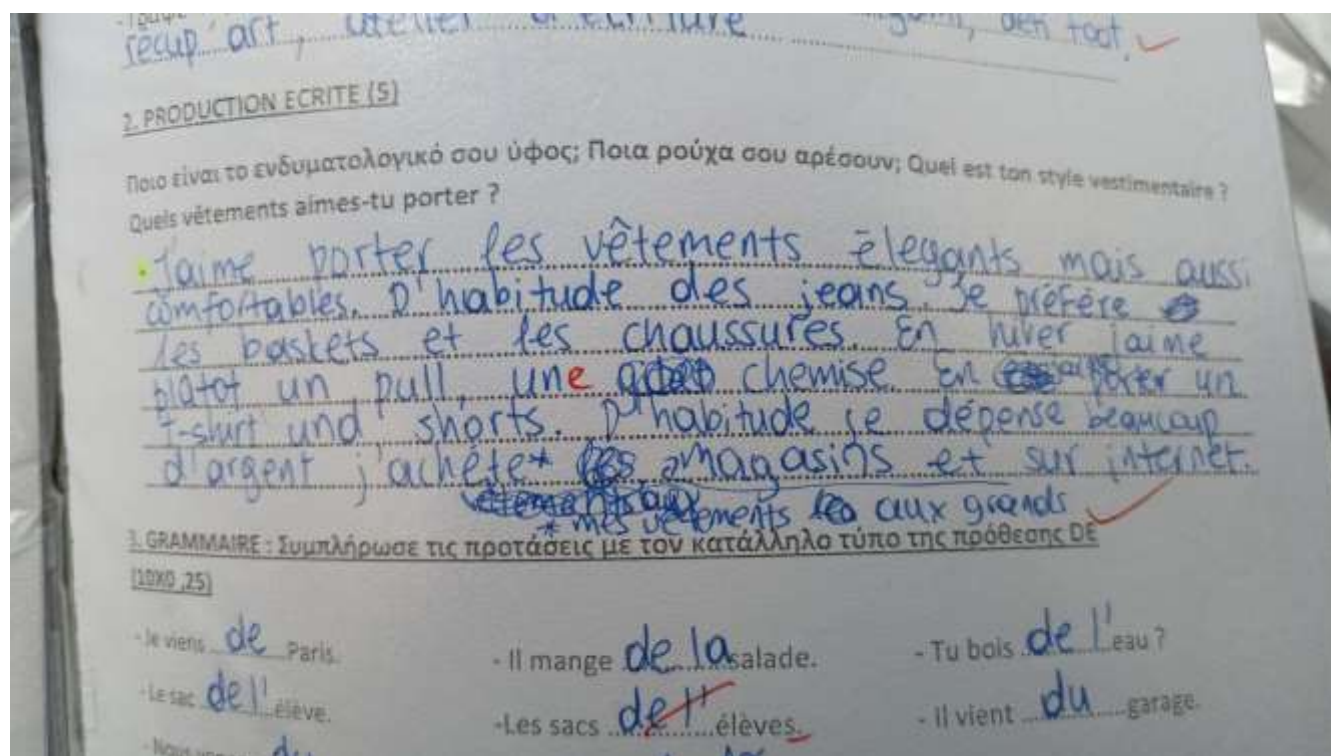 récup' art, atelier d'écriture
2. PRODUCTION ECRITE (5)
Ποιο είναι το ενδυματολογικό σου ύφος; Ποια ρούχα σου αρέσουν; Quel est ton style vestimentaire ?
Quels vêtements aimes-tu porter ?
J'aime porter les vêtements élegants mais aussi
comfortables. D'habitude des jeans. Je préfère
les baskets et les chaussures. En hiver j'aime
platot un pull, une chemise. En porter un
T-shirt und shorts. D'habitude je dépense beaucoup
d'argent j'achète* magasins et sur internet.
* mes vêtements aux grands
3. GRAMMAIRE : Συμπλήρωσε τις προτάσεις με τον κατάλληλο τύπο της πρόθεσης DE
(10X0,25)
- Je viens de Paris. - Il mange de la salade. - Tu bois de l' eau ?
- Le sac de l' élève. -Les sacs de l' élèves. - Il vient du garage.
- Nous du